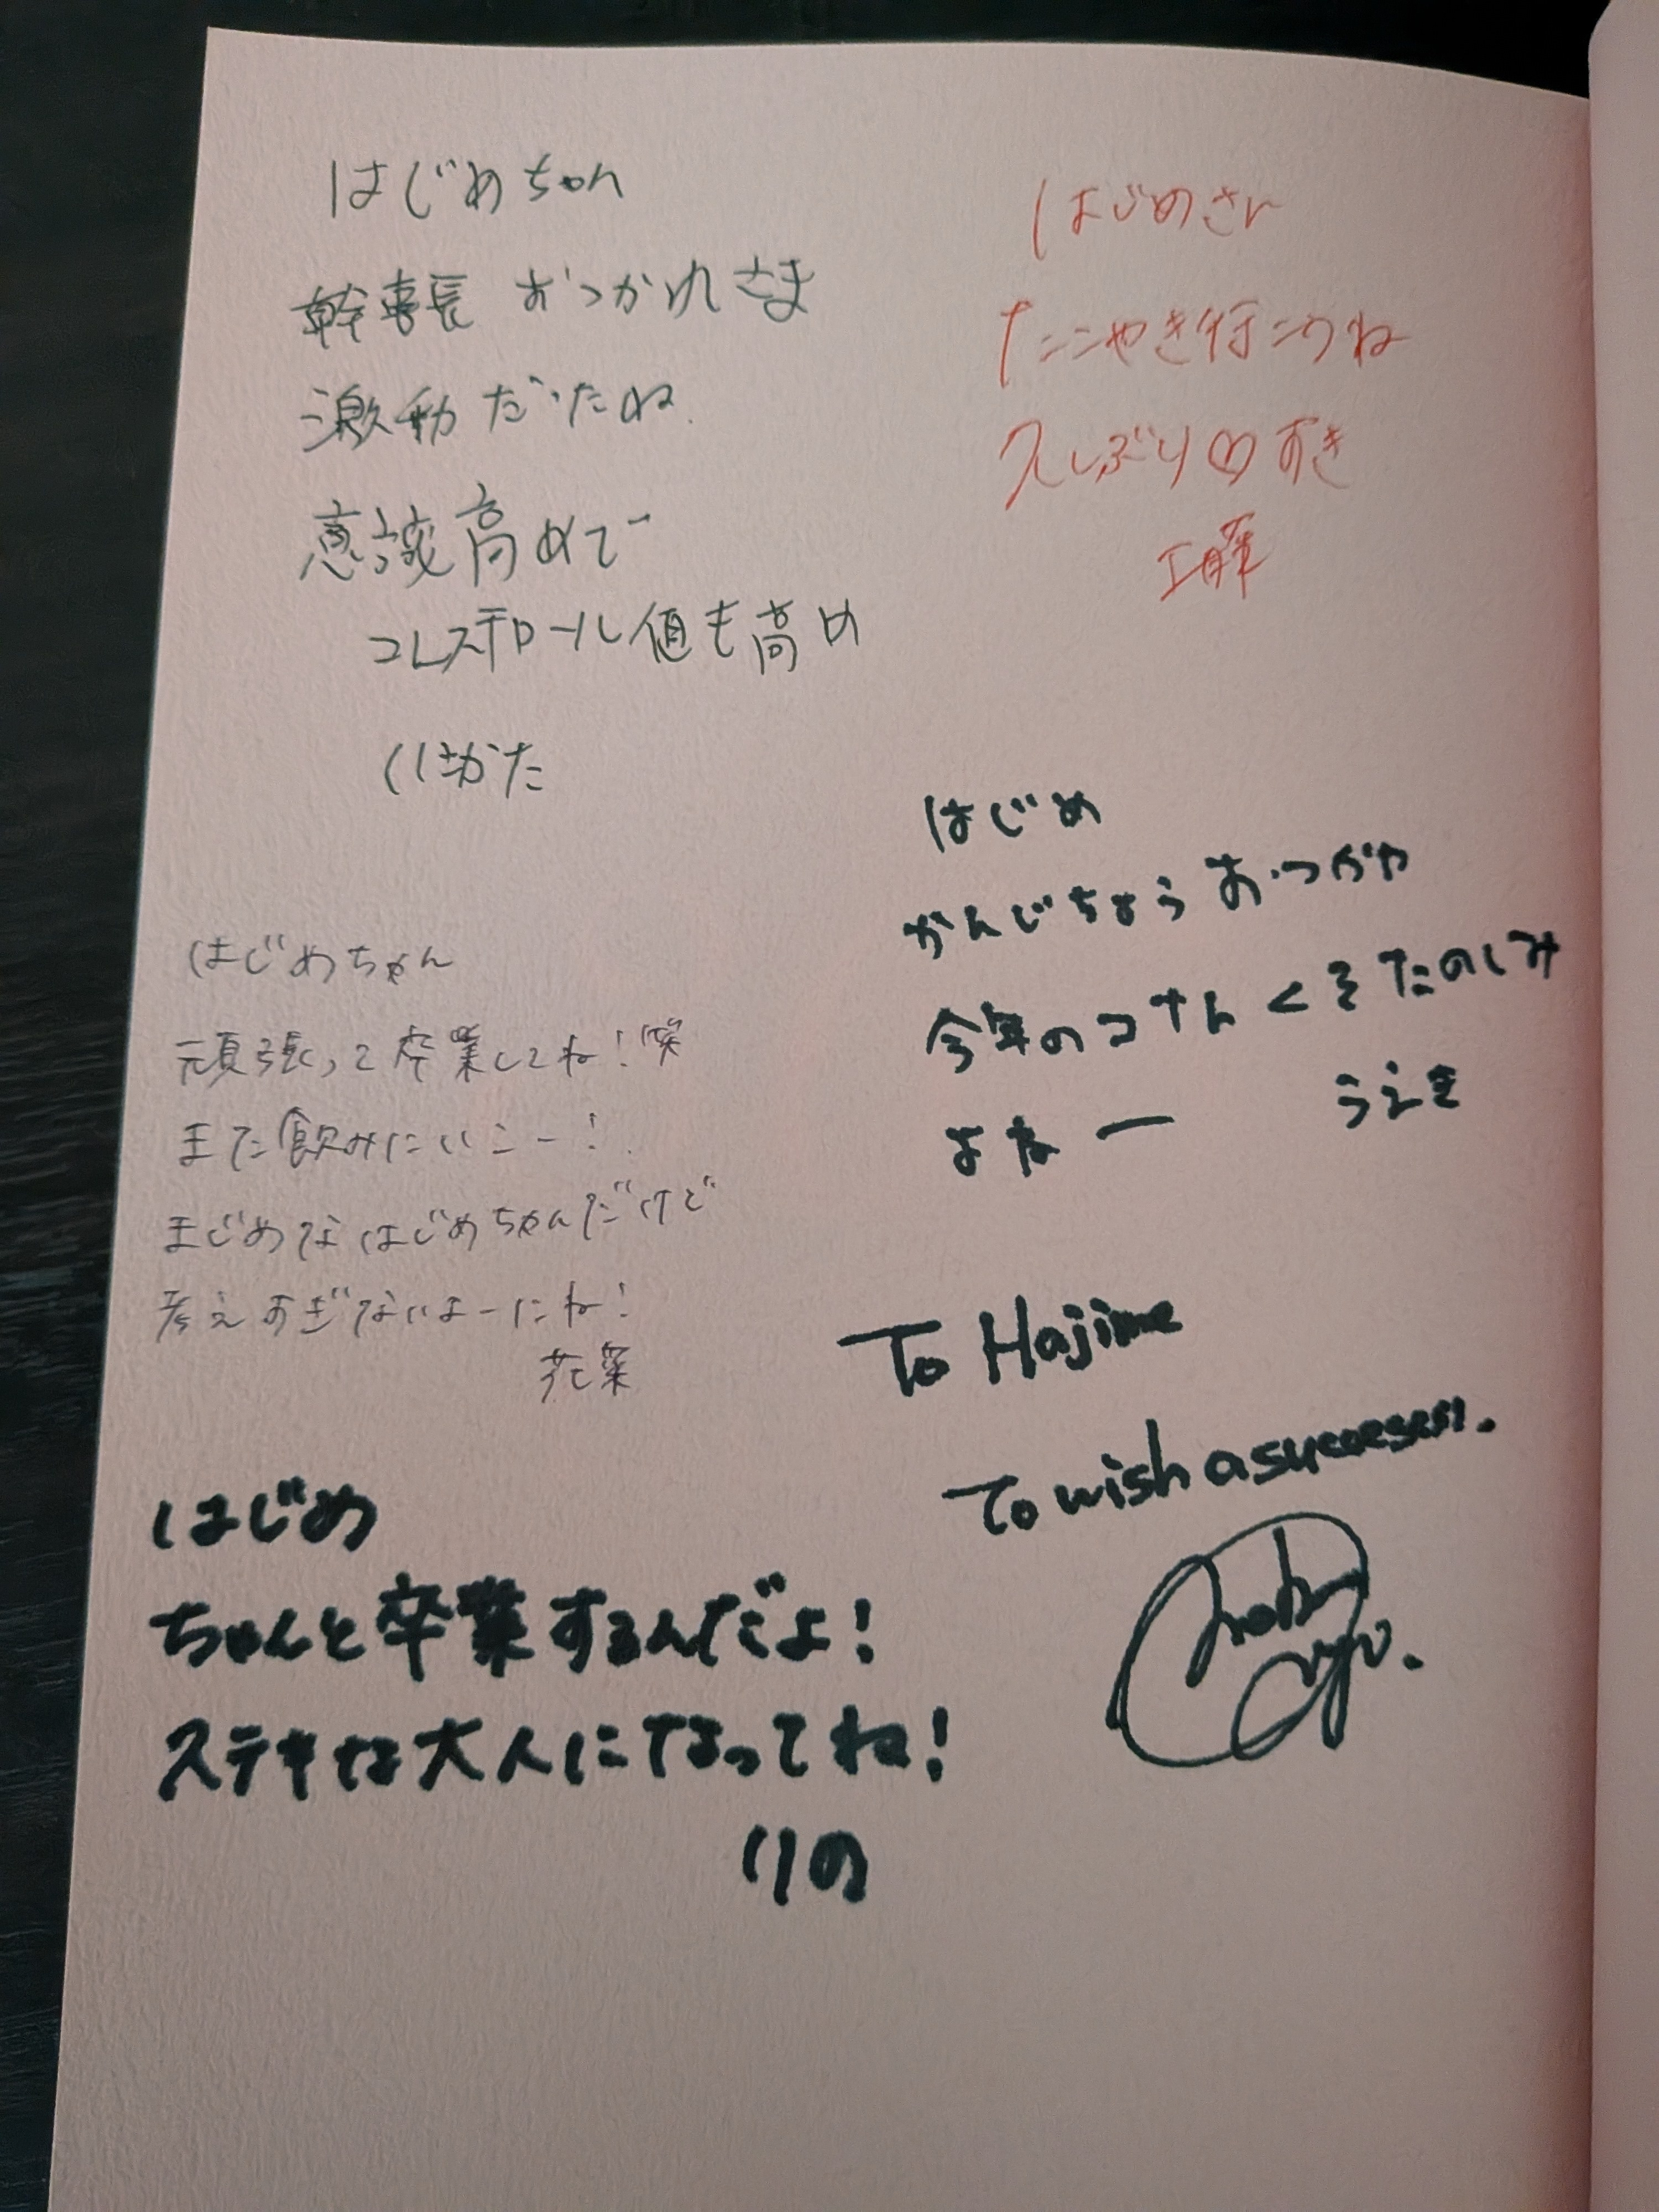 はじめちゃん
幹事長 おつかれさま
激動だったね
意識高めで
コレステロール値も高め
はじめさん
たこやき行こうね
久しぶり♡すき
工藤
はじめ
かんじちょう おつかや
今年のコナんくそたのしみ
よなー
うえき
はじめちゃん
頑張って卒業してね!笑
また飲みにいこー!
まじめなはじめちゃんだけど
考えすぎないよーにね!
花菜
To Hajime
To wish a
はじめ
ちゃんと卒業するんだよ!
ステキな大人になってね!
りの